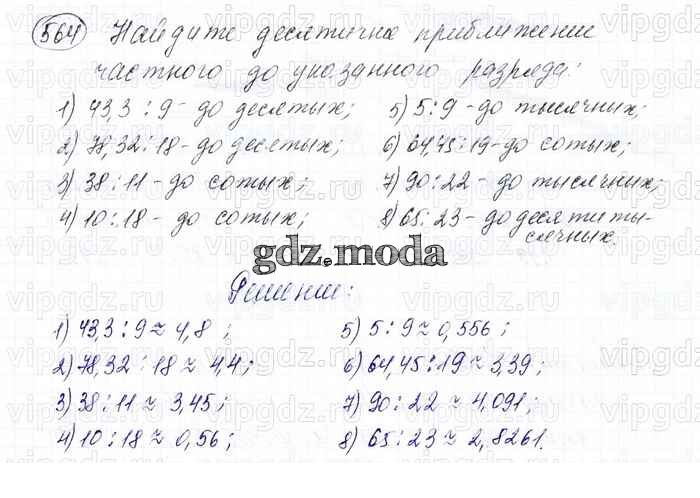 564 Найдите десятичное приближение
частного до указанного разряда:
1) 43,3 : 9 - до десятых;
2) 78,32 : 18 - до десятых;
3) 38 : 11 - до сотых;
4) 10 : 18 - до сотых;
5) 5 : 9 - до тысячных;
6) 64,45 : 19 - до сотых;
7) 90 : 22 - до тысячных;
8) 65 : 23 - до десятиты-
сячных.
gdz.moda
Решение:
1) 43,3 : 9 ≈ 4,8 ;
2) 78,32 : 18 ≈ 4,4;
3) 38 : 11 ≈ 3,45;
4) 10 : 18 ≈ 0,56;
5) 5 : 9 ≈ 0,556 ;
6) 64,45 : 19 ≈ 3,39;
7) 90 : 22 ≈ 4,091;
8) 65 : 23 ≈ 2,8261.
vipgdz.ru